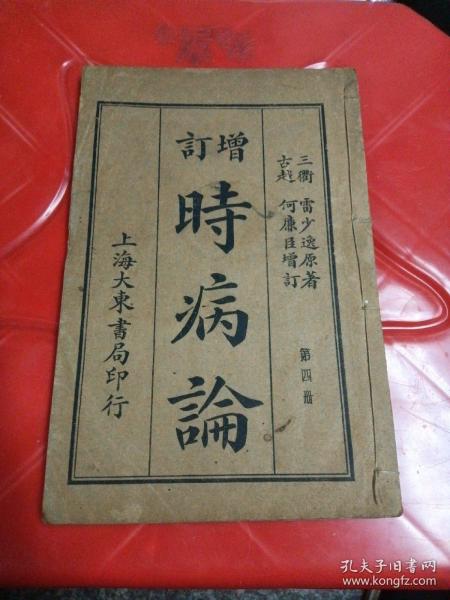 三衢 雷少逸原著
古越 何廉臣增訂
第四冊
增訂
時病論
上海大東書局印行
孔夫子旧书网
www.kongfz.com